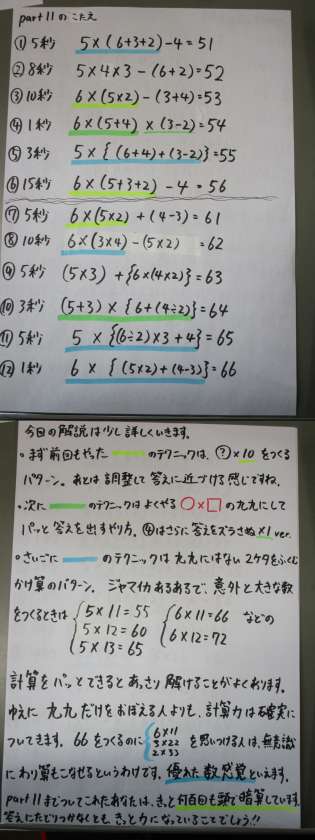 part 11 の こたえ
① 5秒 5×(6+3+2)-4=51
② 8秒 5×4×3-(6+2)=52
③ 10秒 6×(5×2)-(3+4)=53
④ 1秒 6×(5+4)×(3-2)=54
⑤ 3秒 5×{(6+4)+(3-2)}=55
⑥ 15秒 6×(5+3+2)-4=56
⑦ 5秒 6×(5×2)+(4-3)=61
⑧ 10秒 6×(3×4)-(5×2)=62
⑨ 5秒 (5×3)+{6×(4×2)}=63
⑩ 3秒 (5+3)×{6+(4÷2)}=64
⑪ 5秒 5×{(6÷2)×3+4}=65
⑫ 1秒 6×{(5×2)+(4-3)}=66
今日の解説は少し詳しくいきます。
・まず前回もやった のテクニックは、?×10 をつくる
パターン。あとは調整して答えに近づける感じですね。
・次に のテクニックはよくやる ○×□ の九九にして
パッと答えを出すやり方。④はさらに答えをズラさぬ×1 ver.
・さいごに のテクニックは九九にはない2ケタをふくむ
かけ算のパターン。ジャマイカあるあるで、意外と大きな数
をつくるときは { 5×11=55 { 6×11=66 などの
5×12=60 6×12=72
5×13=65
計算をパッとできるとあっさり解けることがよくあります。
ゆえに九九だけをおぼえる人よりも、計算力は確実に
ついてきます。66をつくるのに { 6×11 を思いつける人は、無意識
3×22
2×33
にわり算もこなせるというわけです。優れた数感覚といえます。
part 11までついてこれたあなたは、きっと何百回も頭で暗算しています。
答えにたどりつかなくとも、きっと力になっていることでしょう!!